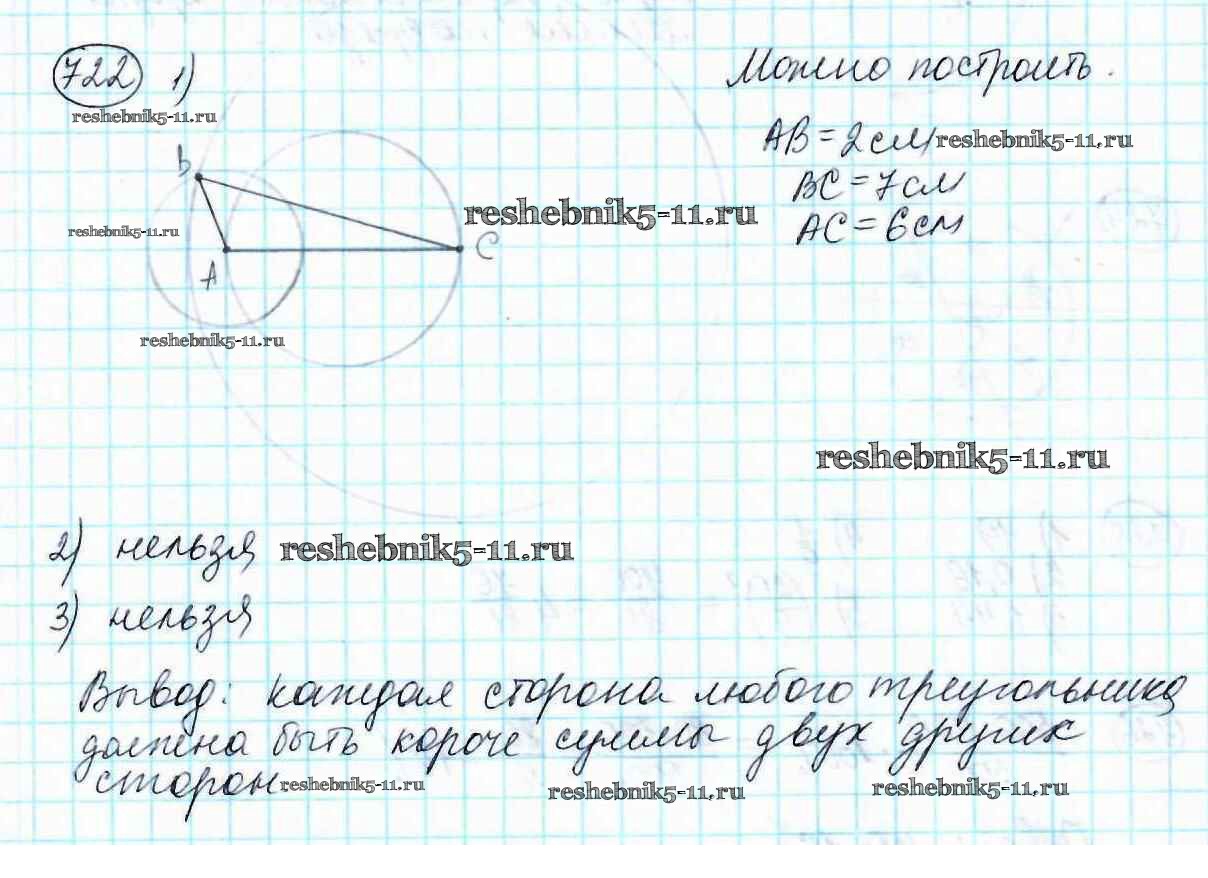 722 1)
Можно построить.
reshebnik5-11.ru
AB = 2 см reshebnik5-11.ru
BC = 7 см
AC = 6 см
B
reshebnik5-11.ru
reshebnik5-11.ru
C
A
reshebnik5-11.ru
reshebnik5-11.ru
2) нельзя reshebnik5-11.ru
3) нельзя
Вывод: каждая сторона любого треугольника
должна быть короче суммы двух других
сторон reshebnik5-11.ru reshebnik5-11.ru reshebnik5-11.ru